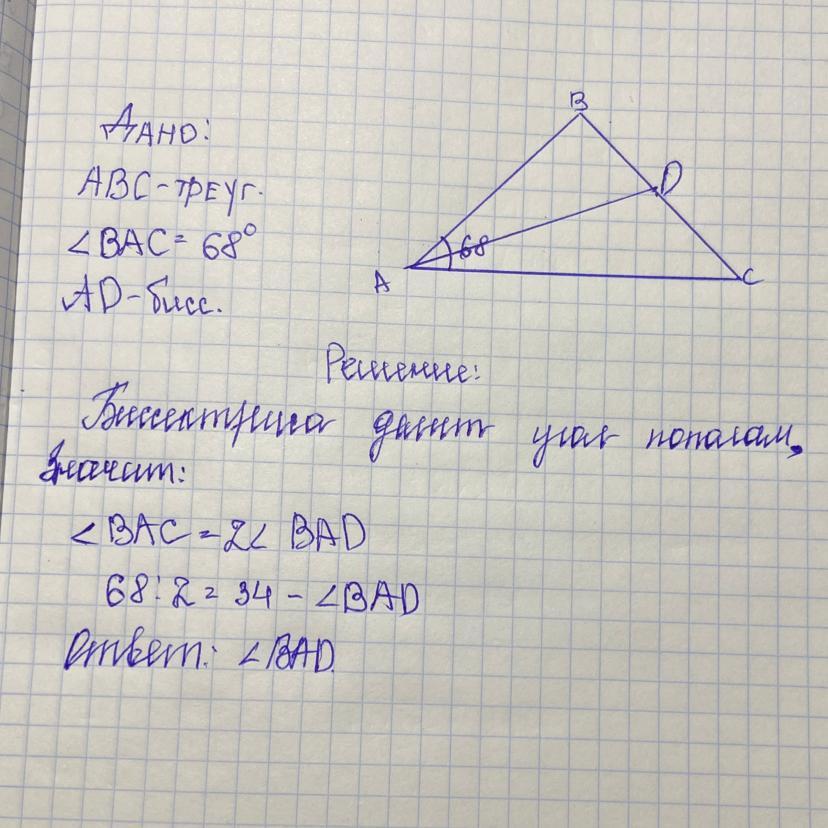 Дано:
ABC-треуг.
∠BAC = 68°
AD-бисс.
B
D
68
A
C
Решение:
Биссектриса делит угол пополам,
Значит:
∠BAC = 2∠ BAD
68:2 = 34 - ∠BAD
Ответ: ∠BAD.